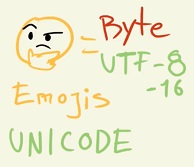 = Byte
UTF-8
-16
Emojis
UNICODE